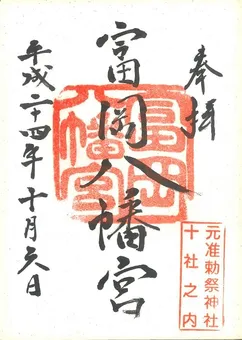 奉拝
富岡八幡宮
平成二十四年十月六日
富岡
八幡宮
元准勅祭神社
十社之内